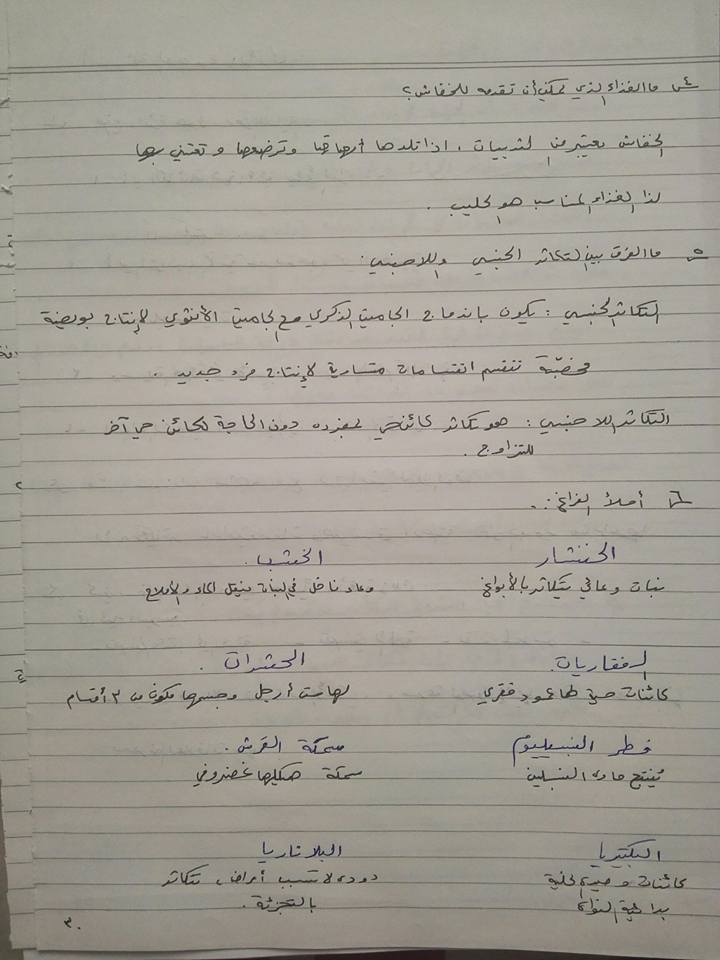 س٤ ما الغذاء الذي يمكن أن تقدمه للخفاش؟
الخفاش يعتبر من الثدييات ، اذا تلدها أمهاتها وترضعها وتعتني بها
لذا الغذاء المناسب هو الحليب .
س٥ ما الفرق بين التكاثر الجنسي واللاجنسي :
التكاثر الجنسي : يكون باندماج الجاميت الذكري مع الجاميت الأنثوي لإنتاج بويضة
مخصّبة تنقسم انقسامات متساوية لإنتاج فرد جديد .
التكاثر اللاجنسي : هو تكاثر كائن حي بمفرده دون الحاجة لكائن حي آخر
للتزاوج .
س٦ أملأ الفراغ :..
الخنشار الخشب .
نبات وعائي يتكاثر بالأبواغ وعاء ناقل في النبات ينقل الماء والأملاح
الفقاريات . الحشرات .
كائنات حية لها عمود فقري لها ست أرجل وجسمها مكون من ٣ أقسام
فطر البنسيليوم سمكة القرش .
يُنتج مادة البنسلين سمكة هيكلها غضروفي
البكتيريا البلاناريا
كائنات وحيدة الخلية دودة لا تسبب أمراض ، تتكاثر
بدائية النواة بالتجزئة .
٣٠